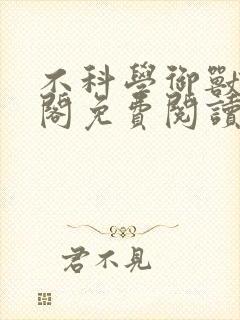 不科學御獸
閣免費閱讀
君不見